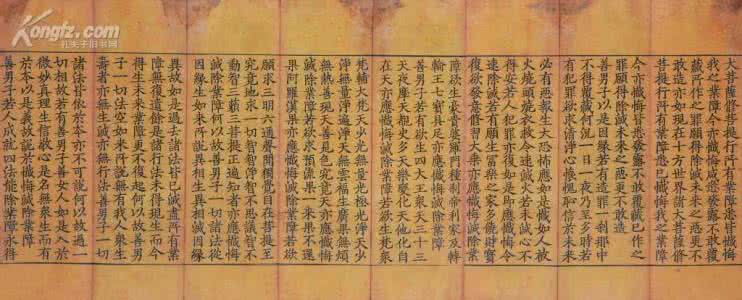 大菩薩修菩提行所有業障悉皆懺悔
我之業障今亦懺悔皆悉發露不敢覆
藏所作之罪願得除滅未來之惡更不
敢造亦如現在十方世界諸大菩薩修
菩提行所有業障悉已懺悔我之業障
今亦懺悔皆悉發露不敢覆藏已作之
罪願得除滅未來之惡更不敢造
善男子以是因緣若有造罪一剎那中
不得覆藏何況一日一夜乃至多時若
有犯罪欲求清淨心懷愧恥信於未來
必有惡報生大恐怖應如是懺如人被
火燒頭燒衣救令速滅火若未滅心不
得安若人犯罪亦復如是即應懺悔令
速除滅若有願生富樂之家多饒財寶
復欲發意修習大乘亦應懺悔滅除業
障欲生豪貴婆羅門種剎帝利家及轉
輪王七寶具足亦應懺悔滅除業障
善男子若有欲生四大王眾天三十三
天夜摩天覩史多天樂變化天他化自
在天亦應懺悔滅除業障若欲生梵眾
梵輔大梵天少光無量光極光淨天少
淨無量淨遍淨天無雲福生廣果無煩
無熱善現天善見色究竟天亦應懺悔
滅除業障若欲求預流果一來果不還
果阿羅漢果亦應懺悔滅除業障若欲
願求三明六通聲聞獨覺自在菩提至
究竟地求一切智智淨智不思議智不
動智三藐三菩提正遍知者亦應懺悔
滅除業障何以故善男子一切諸法從
因緣生如來所說異相生異相滅因緣
異故如是過去諸法皆已滅盡所有業
障無復遺餘是諸行法未得現生而今
得生未來業障更不復起何以故善男
子一切法空如來所說無有我人眾生
壽者亦無生滅亦無行法善男子一切
諸法皆依於本亦不可說何以故過一
切相故若有善男子善女人如是入於
微妙真理生信敬心是名無眾生而有
於本以是義故說於懺悔滅除業障
善男子若人成就四法能除業障永得
Kongfz.com
孔夫子旧书网